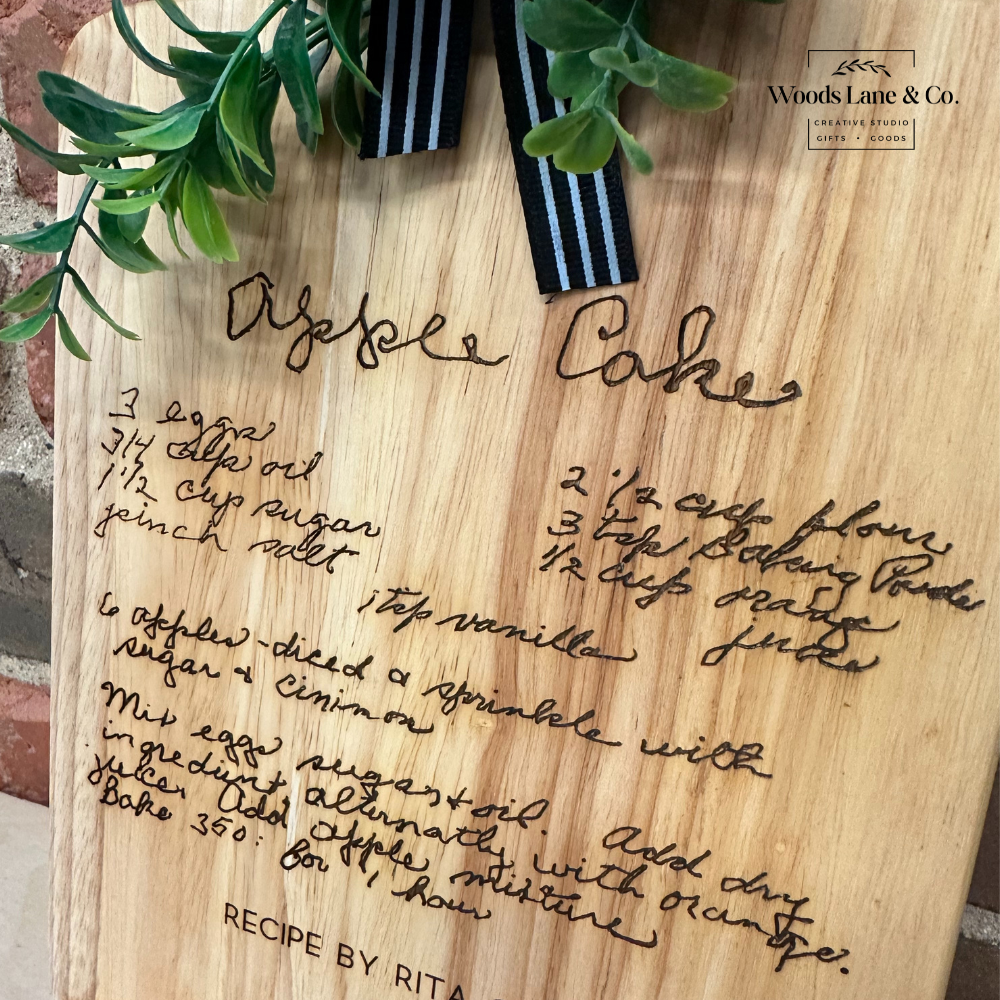 Woods Lane & Co.
CREATIVE STUDIO
GIFTS • GOODS
Apple Cake
3 eggs
3/4 cup oil
1 1/2 cup sugar
pinch salt
2 1/2 cup flour
3 tsp Baking Powde
1/2 cup orange
juice
1 tsp vanilla
6 apples - diced & sprinkle with
sugar & cinimon
Mix eggs sugar & oil. Add dry
ingredient alternatly with orange.
juice. Add apple mixture
Bake 350: for 1 hour
RECIPE BY RITA